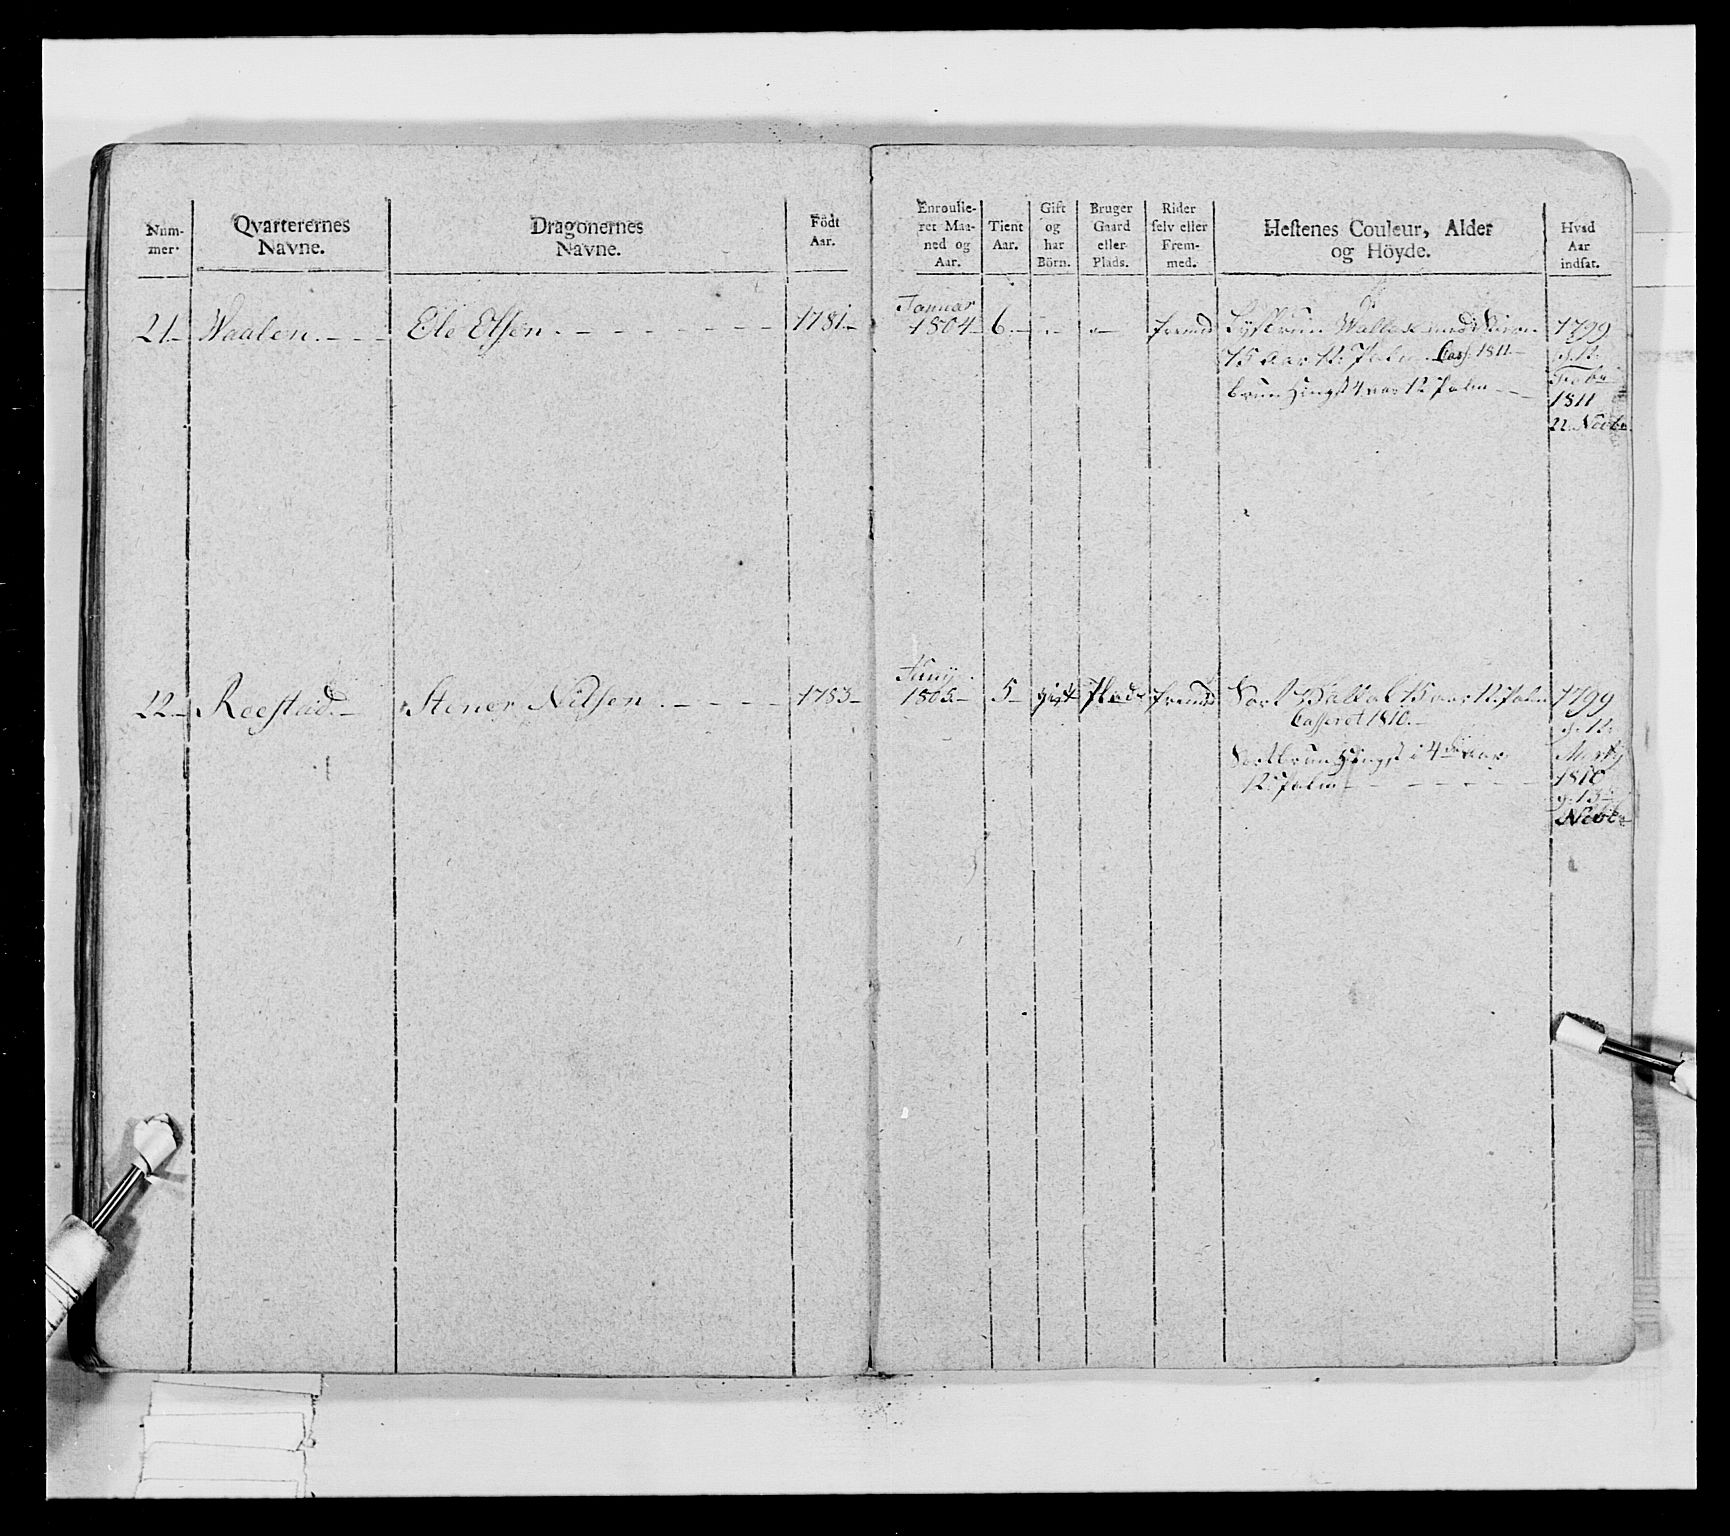 Num-
mer.
Qvarterernes
Navne.
Dragonernes
Navne.
Födt
Aar.
Enroulle-
ret Maa-
ned og
Aar.
Tient
Aar.
Gift
og
har
Börn.
Bruger
Gaard
eller
Plads.
Rider
selv eller
Frem-
med.
Hestenes Couleur, Alder
og Höyde.
Hvad
Aar
indsat.
21. Waalen. Ole Olsen 1781. Januar 1804 6 fremd
1799
15 aar 12 Palm Cass. 1811
brun Hingst 4 aar 12 Palm
1811
22 Novbr
22. Reestad. Stener Nilsen 1783 Juny 1805. 5 gift Plads fremd Sort Vallak 15 aar 12 Palm 1799
Casseret 1810.
Sortbrun Hingst i 4de aar
12 Palm
1810
Novbr